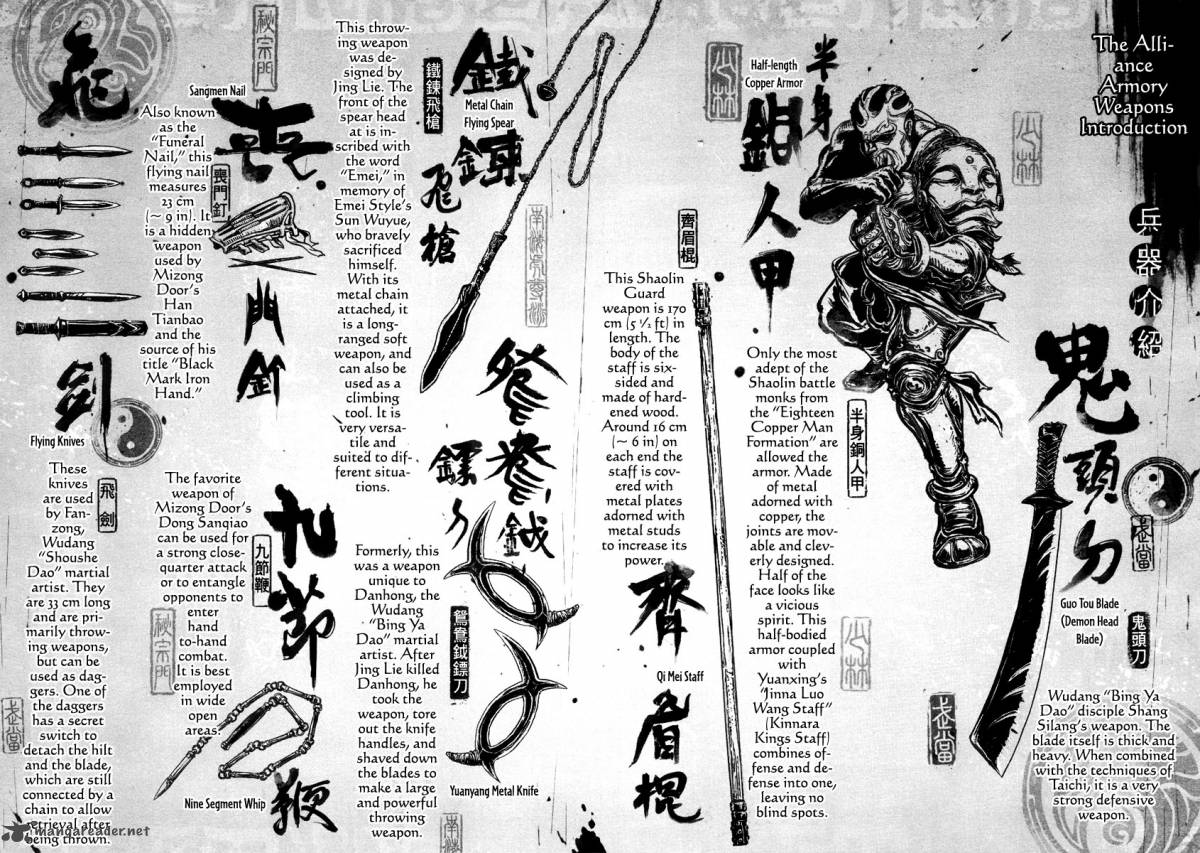 The Alli-
ance
Armory
Weapons
Introduction
兵器介紹
鬼頭刀
武當
Guo Tou Blade
(Demon Head
Blade)
鬼頭刀
武當
Wudang "Bing Ya
Dao" disciple Shang
Silang's weapon. The
blade itself is thick and
heavy. When combined
with the techniques of
Taichi, it is a very
strong defensive
weapon.
少林
半身
銅人甲
Half-length
Copper Armor
少林
半身銅人甲
Only the most
adept of the
Shaolin battle
monks from
the "Eighteen
Copper Man
Formation" are
allowed the
armor. Made
of metal
adorned with
copper, the
joints are mov-
able and clev-
erly designed.
Half of the
face looks like
a vicious
spirit. This
half-bodied
armor coupled
with
Yuanxing's
"Jinna Luo
Wang Staff"
(Kinnara
Kings Staff)
combines of-
fense and de-
fense into one,
leaving no
blind spots.
少林
齊眉棍
This Shaolin
Guard
weapon is 170
cm (5 ½ ft) in
length. The
body of the
staff is six-
sided and
made of hard-
ened wood.
Around 16 cm
(~ 6 in) on
each end the
staff is cov-
ered with
metal plates
adorned with
metal studs
to increase its
power.
齊眉棍
Qi Mei Staff
鐵鍊飛槍
Metal Chain
Flying Spear
鐵鍊飛槍
This throw-
ing weapon
was de-
signed by
Jing Lie. The
front of the
spear head
at is in-
scribed with
the word
"Emei," in
memory of
Emei Style's
Sun Wuyue,
who bravely
sacrificed
himself.
With its
metal chain
attached, it
is a long-
ranged soft
weapon, and
can also be
used as a
climbing
tool. It is
very versa-
tile and
suited to dif-
ferent situa-
tions.
鴛鴦鉞
鏢刀
鴛鴦鉞鏢刀
Formerly, this
was a weapon
unique to
Danhong, the
Wudang
"Bing Ya
Dao" martial
artist. After
Jing Lie killed
Danhong, he
took the
weapon, tore
out the knife
handles, and
shaved down
the blades to
make a large
and powerful
throwing
weapon.
Yuanyang Metal Knife
秘宗門
Sangmen Nail
喪門釘
喪門釘
Also known
as the
"Funeral
Nail," this
flying nail
measures
23 cm
(~ 9 in). It
is a hidden
weapon
used by
Mizong
Door's
Han
Tianbao
and the
source of his
title "Black
Mark Iron
Hand."
九節鞭
九節鞭
The favorite
weapon of
Mizong Door's
Dong Sanqiao
can be used for
a strong close-
quarter attack
or to entangle
opponents to
enter
hand
to-hand
combat.
It is best
employed
in wide
open
areas.
秘宗門
Nine Segment Whip
飛劍
Flying Knives
飛劍
These
knives
are used
by Fan-
zong,
Wudang
"Shoushe
Dao" martial
artist. They
are 33 cm long
and are pri-
marily throw-
ing weapons,
but can be
used as dag-
gers. One of
the daggers
has a secret
switch to
detach the hilt
and the blade,
which are still
connected by a
chain to allow
retrieval after
being thrown.
武當
mangareader.net